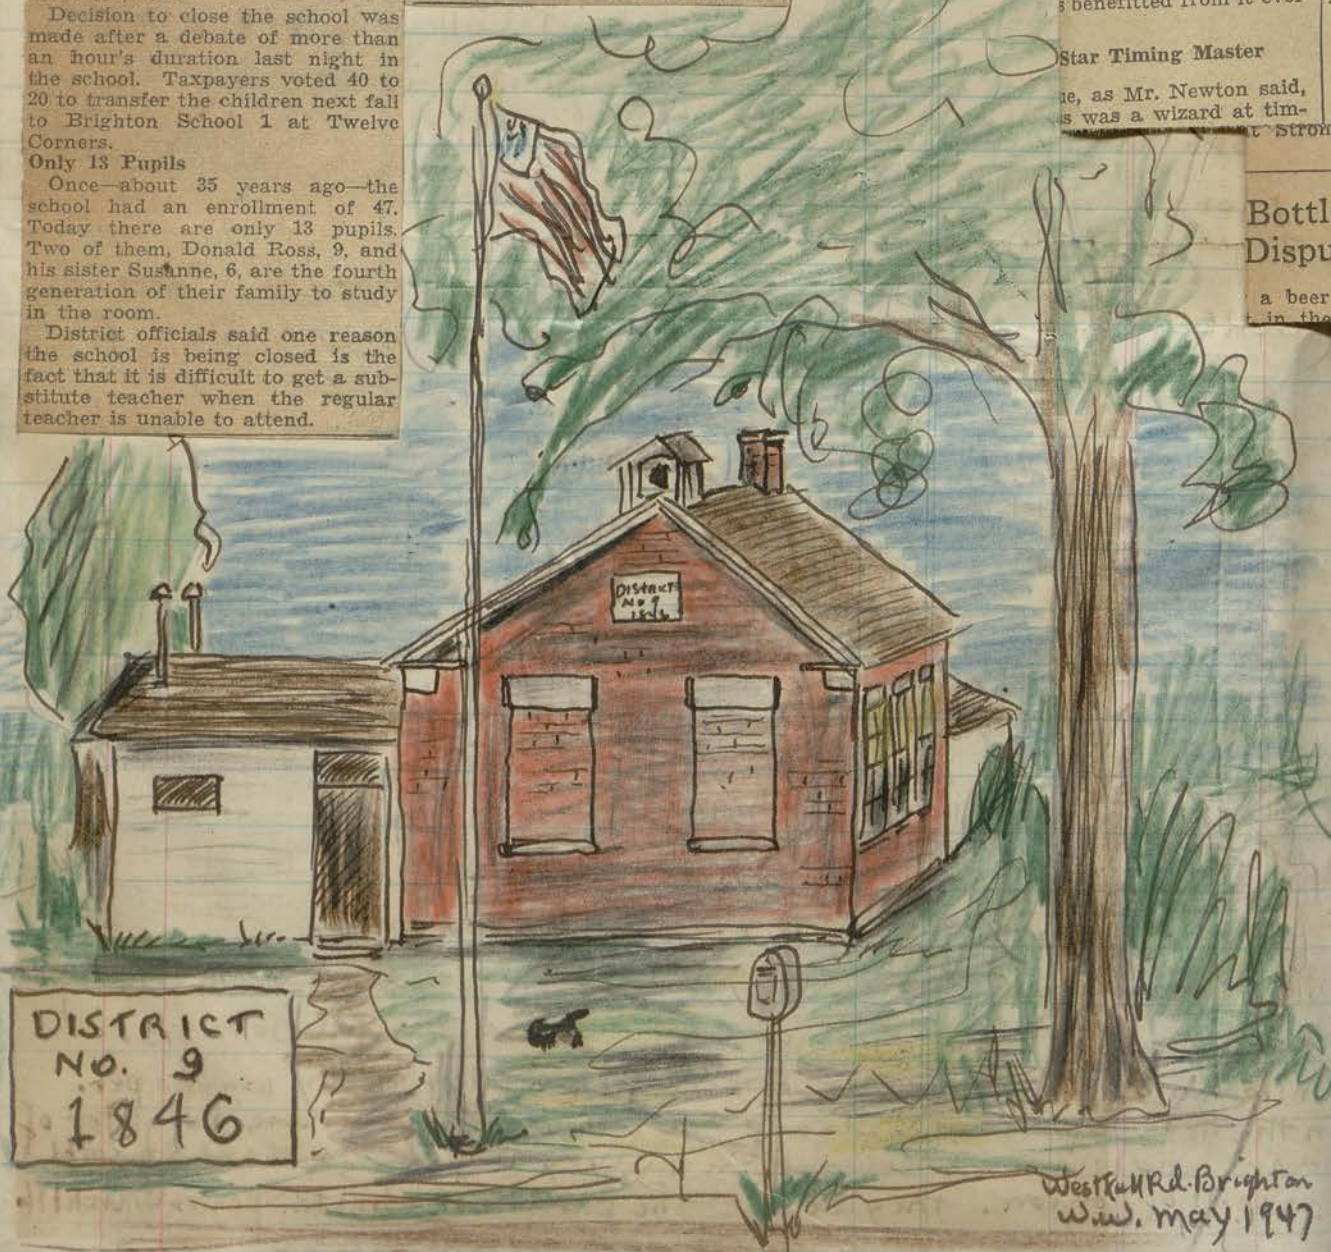 Decision to close the school was
made after a debate of more than
an hour's duration last night in
the school. Taxpayers voted 40 to
20 to transfer the children next fall
to Brighton School 1 at Twelve
Corners.
Only 13 Pupils
Once—about 35 years ago—the
school had an enrollment of 47.
Today there are only 13 pupils.
Two of them, Donald Ross, 9, and
his sister Susanne, 6, are the fourth
generation of their family to study
in the room.
District officials said one reason
the school is being closed is the
fact that it is difficult to get a sub-
stitute teacher when the regular
teacher is unable to attend.
s benefitted from it ever
Star Timing Master
ue, as Mr. Newton said,
s was a wizard at tim-
Bottl
Dispu
a beer
t in the
DISTRICT
No. 9
1846
DISTRICT
NO. 9
1846
Westfall Rd. Brighton
W.W. May 1947